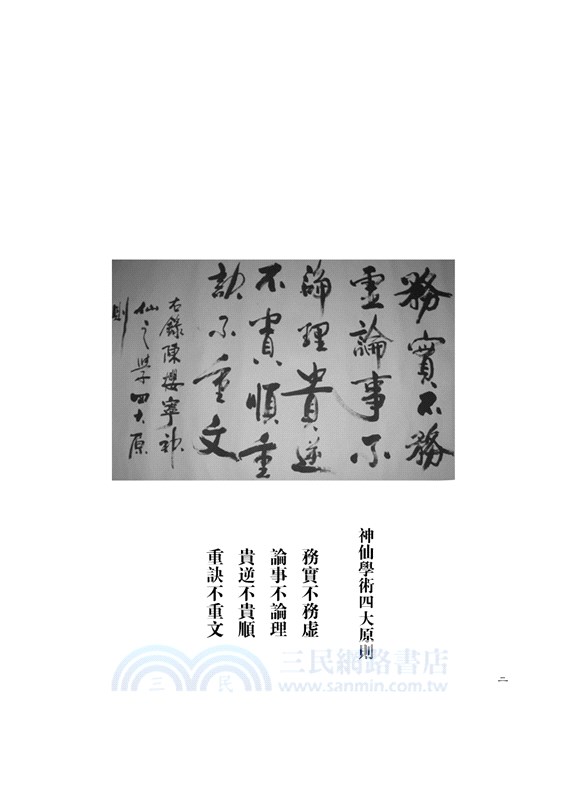 務實不務
虛論事不
論理貴逆
不貴順重
訣不重文
右錄陳攖寧神
仙之學四大原
則
神仙學術四大原則
務實不務虛
論事不論理
貴逆不貴順
重訣不重文
三民網路書店
三 民
www.sanmin.com.tw
二